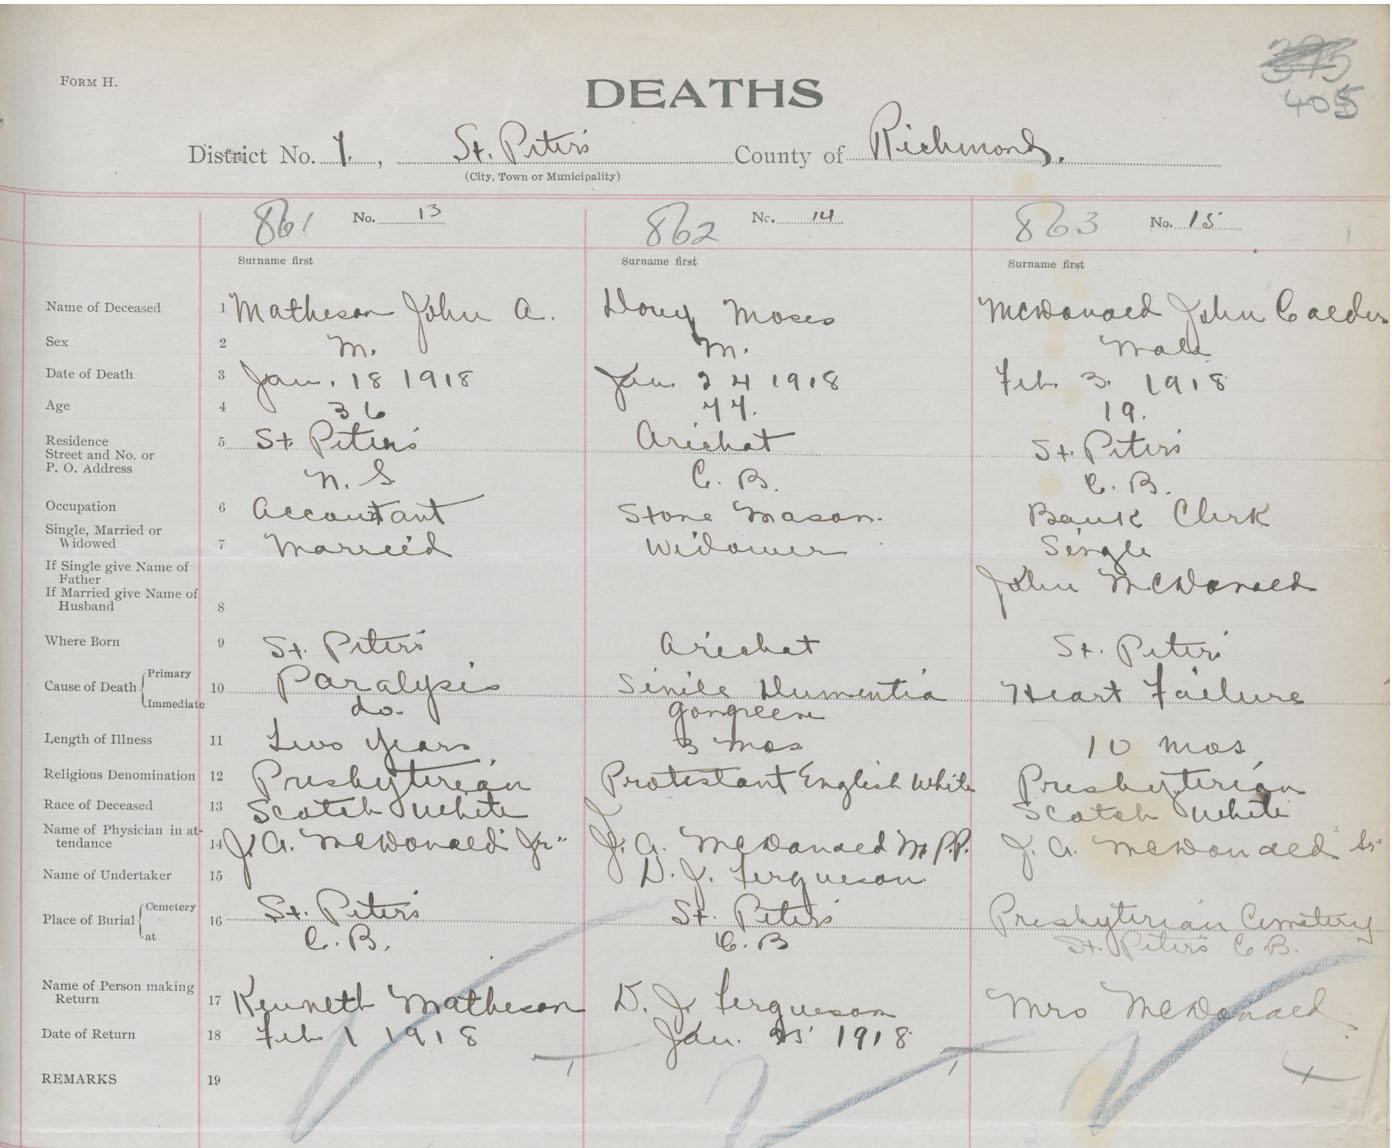 FORM H.
DEATHS
405
District No. 7, St. Peters County of Richmond.
(City, Town or Municipality)
861 No. 13 862 No. 14 863 No. 15
Surname first Surname first Surname first
Name of Deceased 1 Matheson John A. Moses McDonald John Calder
Sex 2 M. M. Male
Date of Death 3 Jan. 18 1918 Jan 24 1918 Feb 3. 1918
Age 4 36 77. 19.
Residence 5 St. Peters Arichat St. Peters
Street and No. or
P. O. Address N. S C. B. C. B.
Occupation 6 Accountant Stone Mason. Bank Clerk
Single, Married or
Widowed 7 Married Widower Single
If Single give Name of
Father John McDonald
If Married give Name of
Husband 8
Where Born 9 St. Peters Arichat St. Peters
Cause of Death Primary 10 Paralysis Sinile Dumentia Heart Failure
Immediate do. gongreene
Length of Illness 11 Two Years 3 mos 10 mos
Religious Denomination 12 Presbyterian Protestant English White Presbyterian
Race of Deceased 13 Scotch White Scotch White
Name of Physician in at-
tendance 14 J. A. McDonald Jr. J. A. McDonald M.P.P. J. A. McDonald Sr
Name of Undertaker 15 D. J. Fergueson
Place of Burial Cemetery 16 St. Peters St. Peters Presbyterian Cemetery
at C. B. C. B St. Peters C B.
Name of Person making
Return 17 Kenneth Matheson D. J. Fergueson Mrs McDonald
Date of Return 18 Feb 1 1918 Jan. 25 1918
REMARKS 19